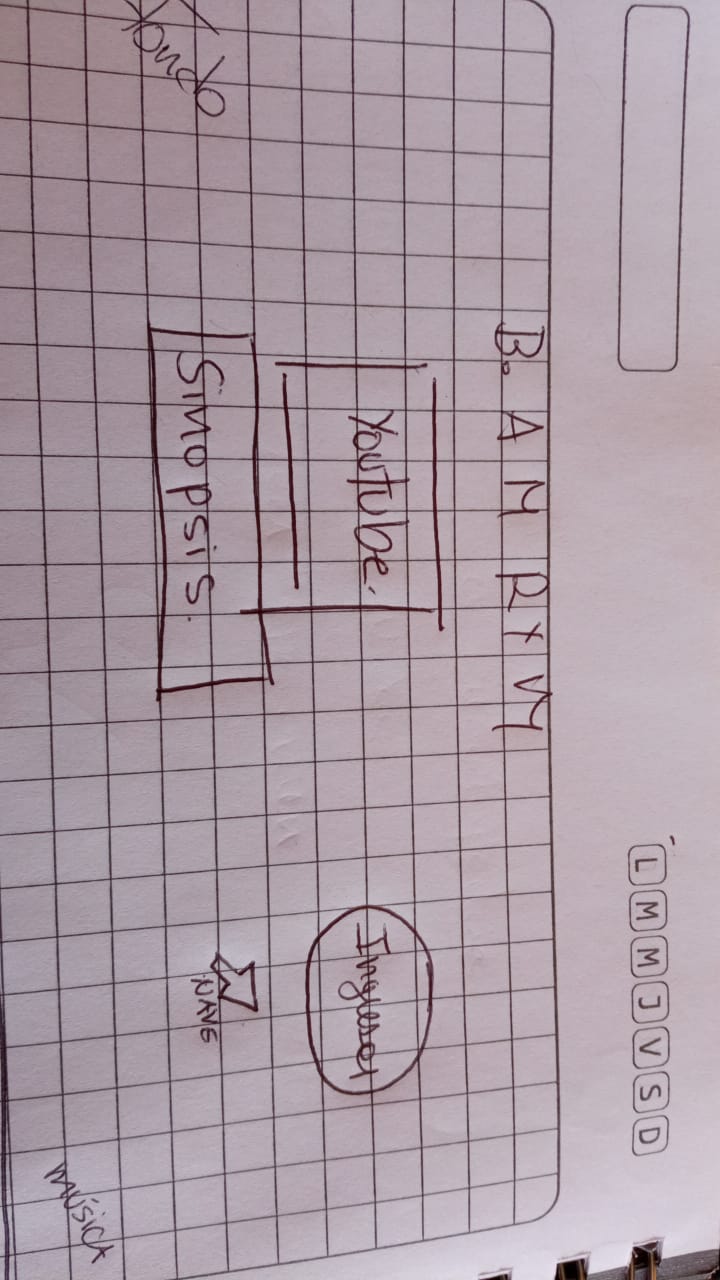 L M M J V S D
B. A M R Y VY
Youtube.
Ingresar
Sinopsis.
NAVE
fondo
MÚSICA